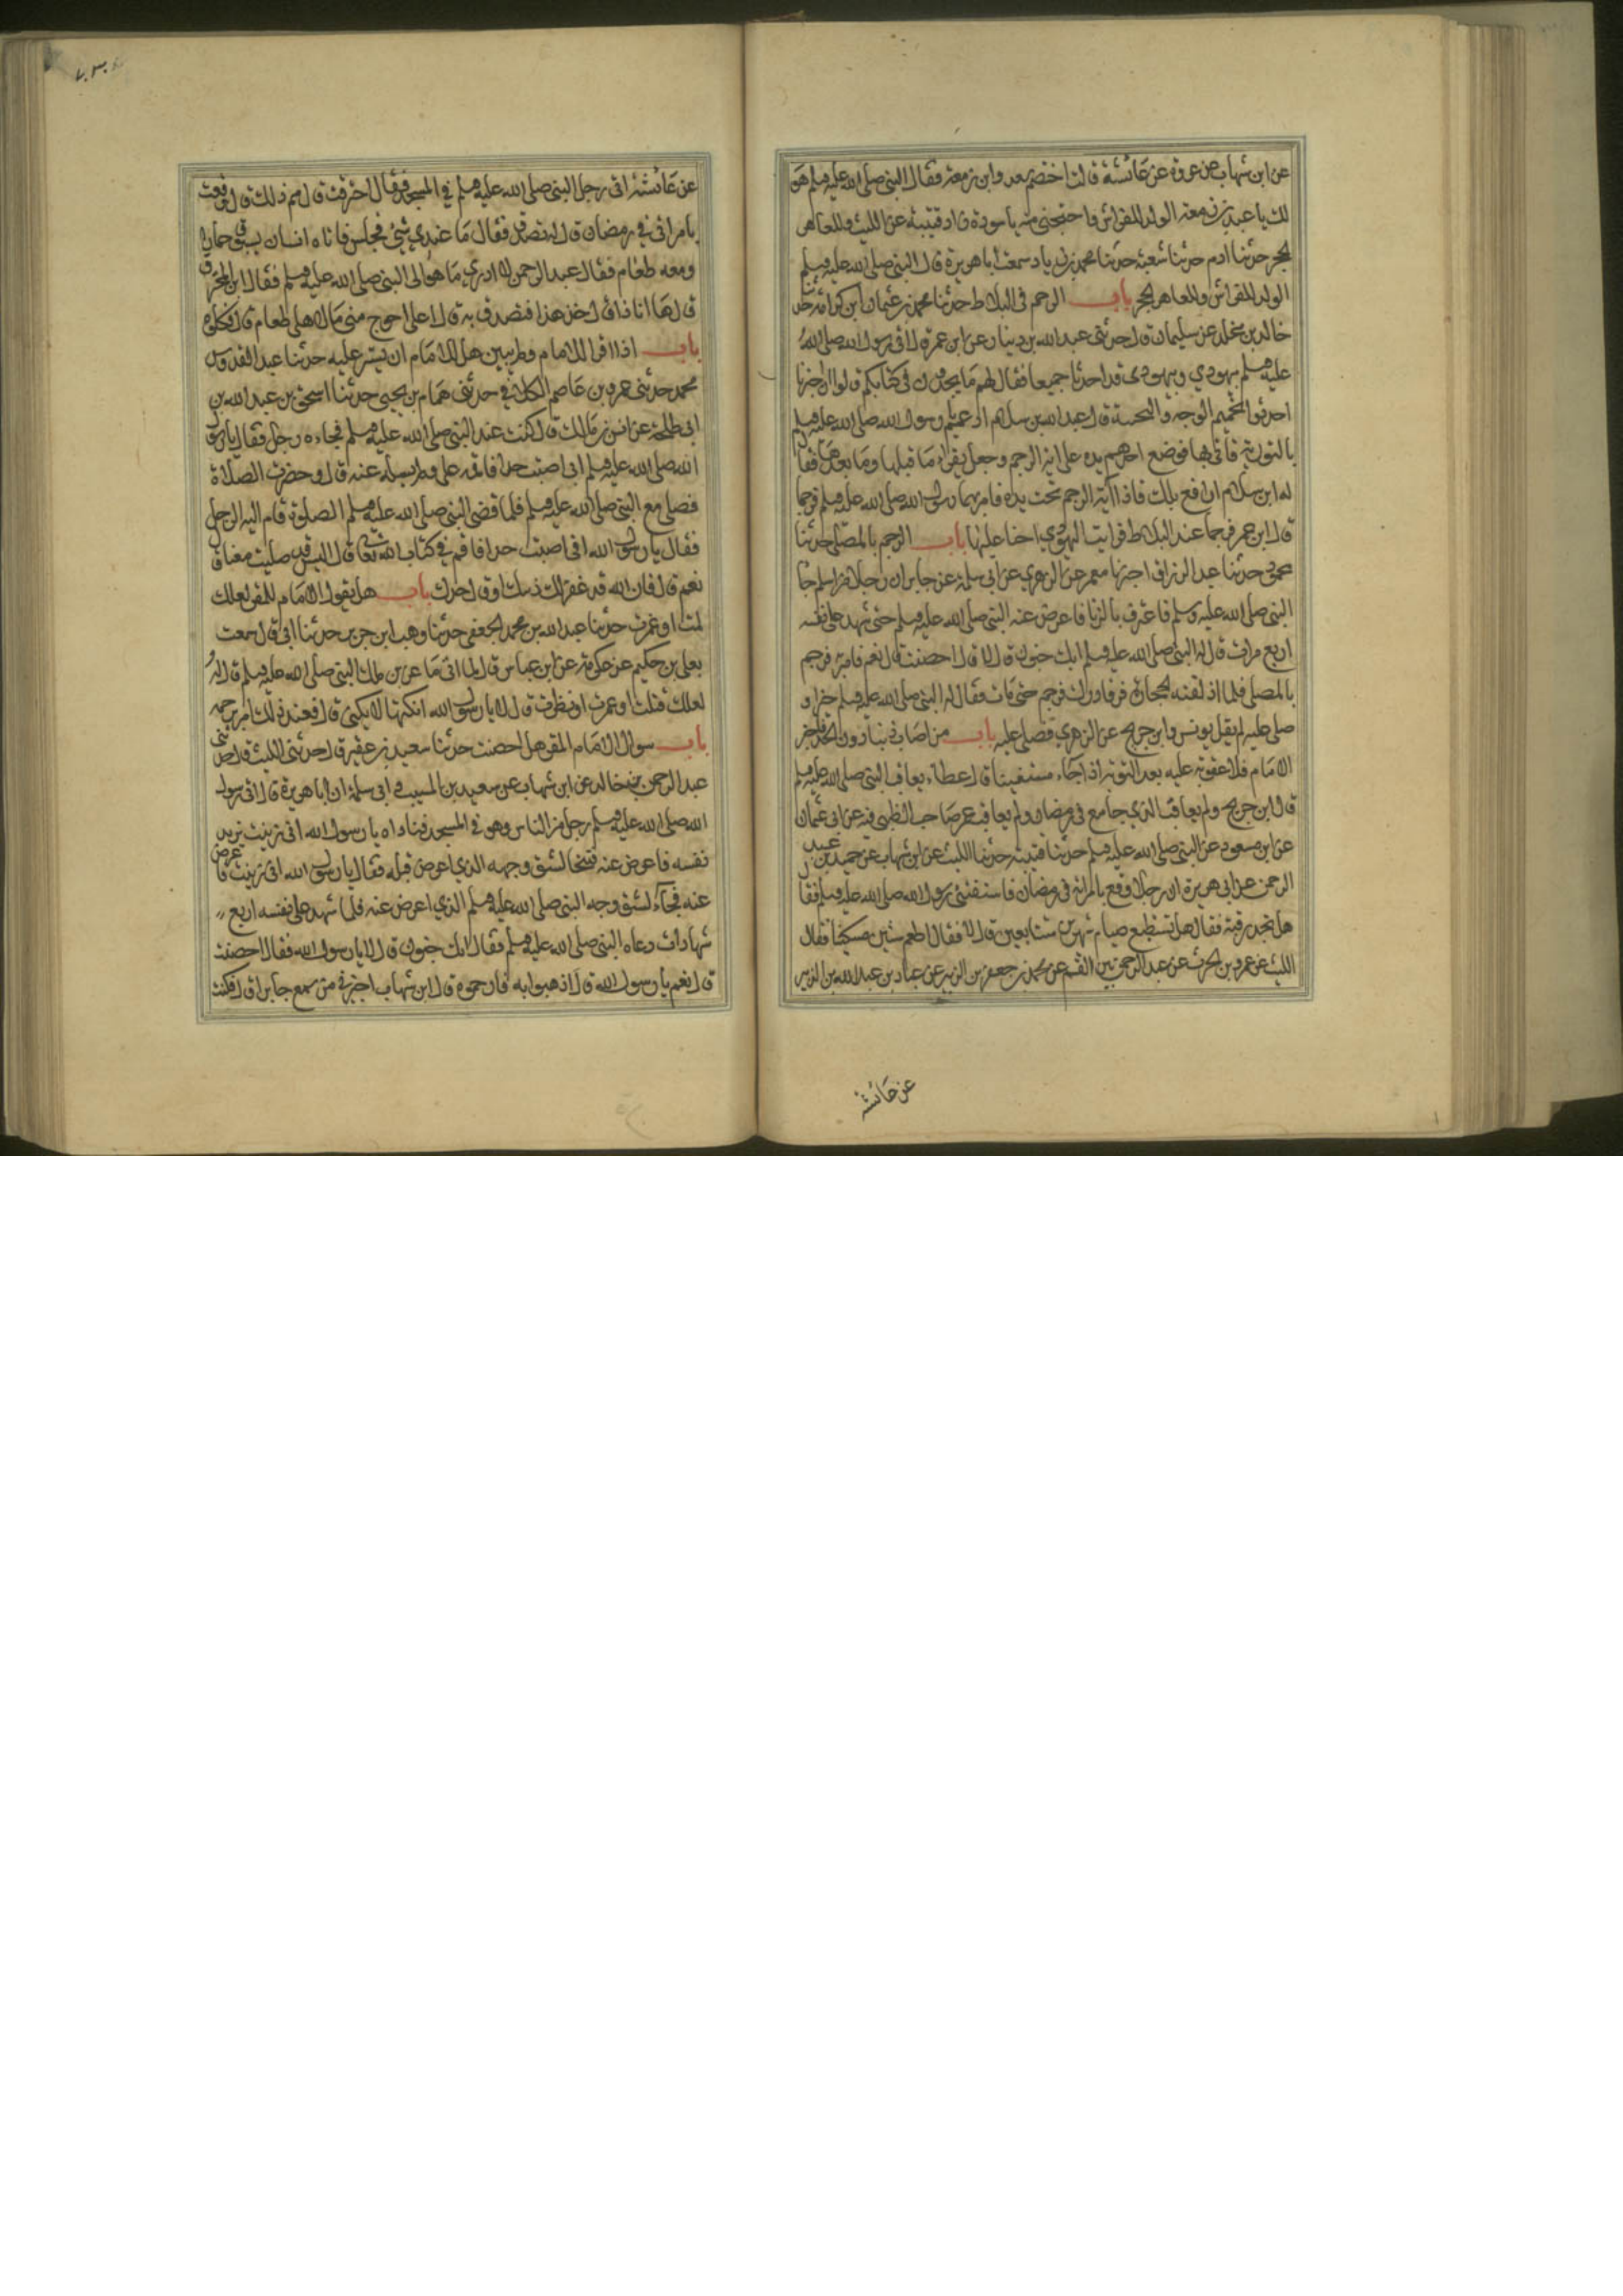 عن ابن شهاب عن عروة عن عائشة قالت اختصم سعد وابن زمعة فقال النبي صلى الله عليه وسلم هو
لك يا عبد بن زمعة الولد للفراش واحتجبي منه يا سودة زاد قتيبة عن الليث وللعاهر
الحجر حدثنا ادم حدثنا شعبة حدثنا محمد بن زياد سمعت ابا هريرة قال النبي صلى الله عليه وسلم
الولد للفراش وللعاهر الحجر باب الرجم في البلاط حدثنا محمد بن عثمان ابن كرامة حدثنا
خالد بن مخلد عن سليمان قال حدثني عبد الله بن دينار عن ابن عمر قال اتى رسول الله صلى الله
عليه وسلم بيهودي ويهودية قد احدثا جميعا فقال لهم ما تجدون في كتابكم قالوا ان احبارنا
احدثوا تحميم الوجه والتجبية قال عبد الله بن سلام ادعهم يا رسول الله صلى الله عليه وسلم
بالتورية فاتى بها فوضع احدهم يده على اية الرجم وجعل يقرا ما قبلها وما بعدها فقال
له ابن سلام ارفع يدك فاذا آية الرجم تحت يده فامر بهما رسول الله صلى الله عليه وسلم فرجما
قال ابن عمر فرجما عند البلاط فرايت اليهودي اجنا عليها باب الرجم بالمصلى حدثنا
محمود حدثنا عبد الرزاق اخبرنا معمر عن الزهري عن ابي سلمة عن جابر ان رجلا من اسلم جا
النبي صلى الله عليه وسلم فاعترف بالزنا فاعرض عنه النبي صلى الله عليه وسلم حتى شهد على نفسه
اربع مرات قال له النبي صلى الله عليه وسلم ابك جنون قال لا قال احصنت قال نعم فامر به فرجم
بالمصلى فلما اذلقته الحجارة فر فادرك فرجم حتى مات فقال له النبي صلى الله عليه وسلم خيرا و
صلى عليه لم يقل يونس وابن جريج عن الزهري فصلى عليه باب من اصاب ذنبا دون الحد فاخبر
الامام فلا عقوبة عليه بعد التوبة اذا جاء مستفتيا قال عطاء لم يعاقبه النبي صلى الله عليه وسلم
قال ابن جريج ولم يعاقب الذي جامع في رمضان ولم يعاقب عمر صاحب الظبي وفيه عن ابي عثمان
عن ابن مسعود عن النبي صلى الله عليه وسلم حدثنا قتيبة حدثنا الليث عن ابن شهاب عن حميد بن عبد
الرحمن عن ابي هريرة ان رجلا وقع بامراته في رمضان فاستفتى رسول الله صلى الله عليه وسلم فقال
هل تجد رقبة فقال هل تستطيع صيام شهرين متتابعين قال لا فقال اطعم ستين مسكينا فقال
الليث عن عمرو بن الحرث عن عبد الرحمن بن القسم عن محمد بن جعفر بن الزبير عن عباد بن عبد الله بن الزبير
عن عائشة
عن عائشة اتى رجل النبي صلى الله عليه وسلم في المسجد فقال احترقت قال مم ذلك قال وقعت
بامراتي في رمضان قال له تصدق فقال ما عندي شئ فجلس فاتاه انسان يسوق حمارا
ومعه طعام فقال عبد الرحمن لا ادري ما هو الى النبي صلى الله عليه وسلم فقال اين المحترق
قال ها انا ذا قال خذ هذا فتصدق به قال اعلى احوج مني مال اهلي طعام قال فكلوه
باب اذا اقر للامام ولم يبين هل للامام ان يستر عليه حدثنا عبد القدوس
محمد حدثني عمرو بن عاصم الكلابي حدثني همام بن يحيى حدثنا اسحق بن عبد الله بن
ابي طلحة عن انس بن مالك قال كنت عند النبي صلى الله عليه وسلم فجاءه رجل فقال يا رسول
الله صلى الله عليه وسلم اني اصبت حدا فاقمه علي ولم يسئله عنه قال وحضرت الصلاة
فصلى مع النبي صلى الله عليه وسلم فلما قضى النبي صلى الله عليه وسلم الصلوة قام اليه الرجل
فقال يا رسول الله اني اصبت حدا فاقم في كتاب الله تعالى قال اليس قد صليت معنا قال
نعم قال فان الله قد غفر لك ذنبك او قال حدك باب هل يقول الامام للمقر لعلك
لمست او غمزت حدثنا عبد الله بن محمد الجعفي حدثنا وهب ابن جرير حدثنا ابي قال سمعت
يعلى بن حكيم عن عكرمة عن ابن عباس قال لما اتى ماعز بن مالك النبي صلى الله عليه وسلم قال له
لعلك قبلت او غمزت او نظرت قال لا يا رسول الله انكتها لا يكنى قال فعند ذلك امر برجمه
باب سوال الامام المقر هل احصنت حدثنا سعيد بن عفير قال حدثني الليث قال حدثني
عبد الرحمن بن خالد عن ابن شهاب عن سعيد بن المسيب وابي سلمة ان ابا هريرة قال اتى رسول
الله صلى الله عليه وسلم رجل من الناس وهو في المسجد فناداه يا رسول الله اني زنيت يريد
نفسه فاعرض عنه فتنحا لشق وجهه الذي اعرض قبله فقال يا رسول الله اني زنيت فاعرض
عنه فجاء لشق وجه النبي صلى الله عليه وسلم الذي اعرض عنه فلما شهد على نفسه اربع
شهادات دعاه النبي صلى الله عليه وسلم فقال ابك جنون قال لا يا رسول الله فقال احصنت
قال نعم يا رسول الله قال اذهبوا به فارجموه قال ابن شهاب اخبرني من سمع جابرا قال فكنت